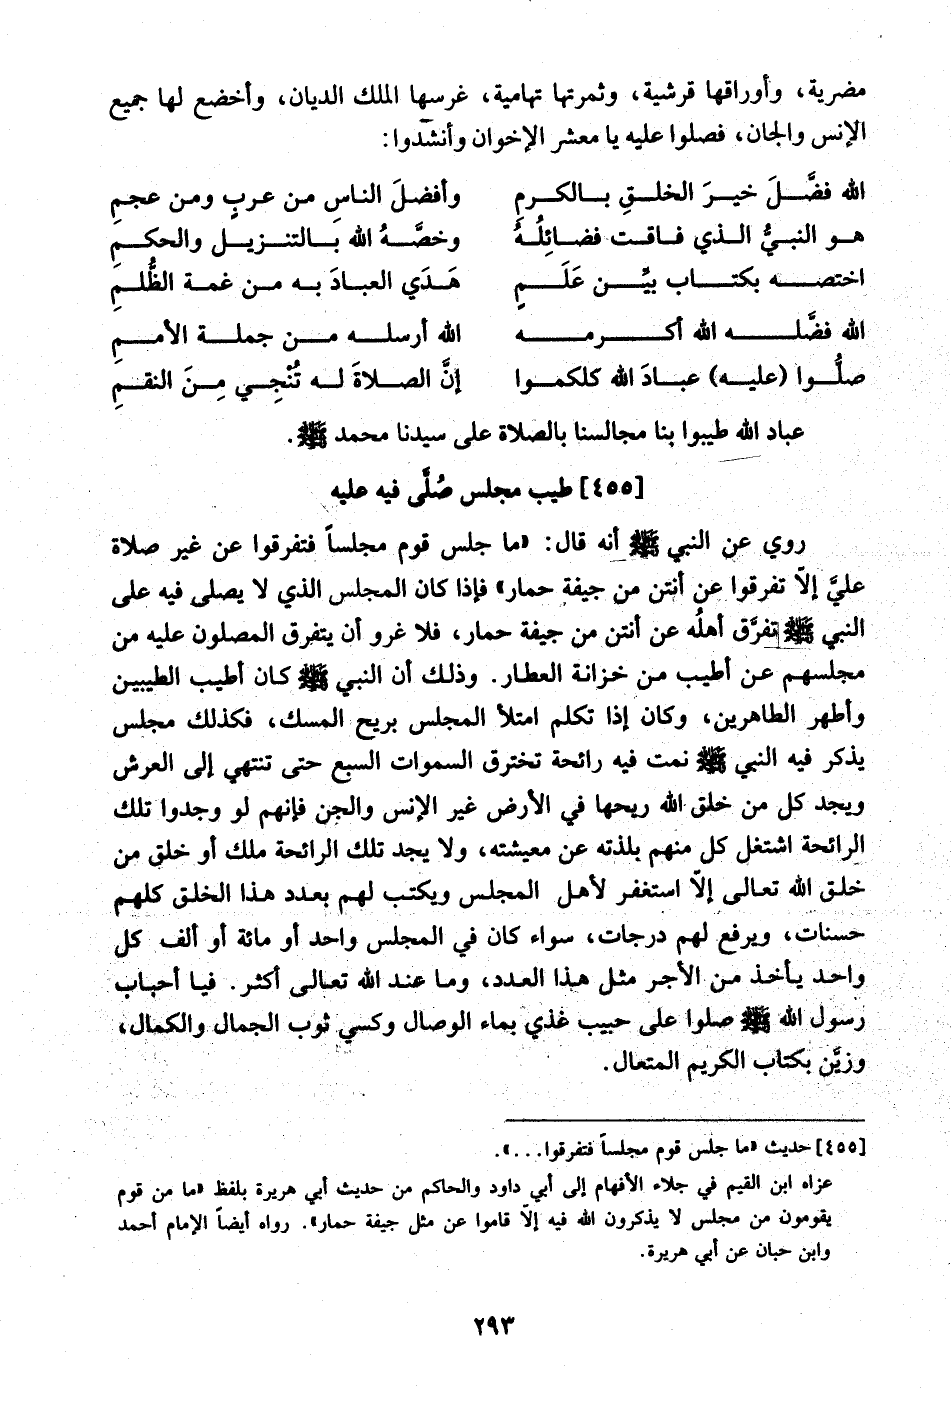 مضرية، وأوراقها قرشية، وثمرتها تهامية، غرسها الملك الديان، وأخضع لها جميع
الإنس والجان، فصلوا عليه يا معشر الإخوان وأنشدوا:
الله فضَّـلَ خيـرَ الخلـقِ بـالكـرمِ وأفضلَ الناسِ من عربٍ ومن عجمِ
هـو النبـيُّ الـذي فـاقـت فضـائِلُـهُ وخصَّـهُ الله بـالتنـزيـل والحكـمِ
اختصـه بكتـاب بيِّـن عَلَـمٍ هَـدَي العبـادَ بـه مـن غمـة الظُّلـمِ
الله فضَّلـه الله أكـرمـه الله أرسلـه مـن جملـة الأمـمِ
صلُّـوا (عليـه) عبـادَ الله كلكمـوا إنَّ الصـلاةَ لـه تُنْجـي مِـنَ النقـمِ
عباد الله طيبوا بنا مجالسنا بالصلاة على سيدنا محمد ﷺ.
[٤٥٥] طيب مجلس صُلَّى فيه عليه
روي عن النبي ﷺ أنه قال: «ما جلس قوم مجلساً فتفرقوا عن غير صلاة
عليَّ إلاّ تفرقوا عن أنتن من جيفة حمار» فإذا كان المجلس الذي لا يصلى فيه على
النبي ﷺ تفرَّق أهلُه عن أنتن من جيفة حمار، فلا غرو أن يتفرق المصلون عليه من
مجلسهم عن أطيب من خزانة العطار. وذلك أن النبي ﷺ كان أطيب الطيبين
وأطهر الطاهرين، وكان إذا تكلم امتلأ المجلس بريح المسك، فكذلك مجلس
يذكر فيه النبي ﷺ نمت فيه رائحة تخترق السموات السبع حتى تنتهي إلى العرش
ويجد كل من خلق الله ريحها في الأرض غير الإنس والجن فإنهم لو وجدوا تلك
الرائحة اشتغل كل منهم بلذته عن معيشته، ولا يجد تلك الرائحة ملك أو خلق من
خلق الله تعالى إلاّ استغفر لأهل المجلس ويكتب لهم بعدد هذا الخلق كلهم
حسنات، ويرفع لهم درجات، سواء كان في المجلس واحد أو مائة أو ألف كل
واحد يأخذ من الأجر مثل هذا العدد، وما عند الله تعالى أكثر. فيا أحباب
رسول الله ﷺ صلوا على حبيب غذي بماء الوصال وكسي ثوب الجمال والكمال،
وزيَّن بكتاب الكريم المتعال.
[٤٥٥] حديث «ما جلس قوم مجلساً فتفرقوا...».
عزاه ابن القيم في جلاء الأفهام إلى أبي داود والحاكم من حديث أبي هريرة بلفظ «ما من قوم
يقومون من مجلس لا يذكرون الله فيه إلاّ قاموا عن مثل جيفة حمار». رواه أيضاً الإمام أحمد
وابن حبان عن أبي هريرة.
٢٩٣